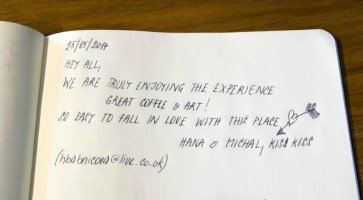 25/05/2014
HEY ALL,
WE ARE TRULY ENJOYING THE EXPERIENCE
GREAT COFFEE & ART!
SO EASY TO FALL IN LOVE WITH THIS PLACE
HANA & MICHAL, KISS KISS
(hbabnicova@live.co.uk)